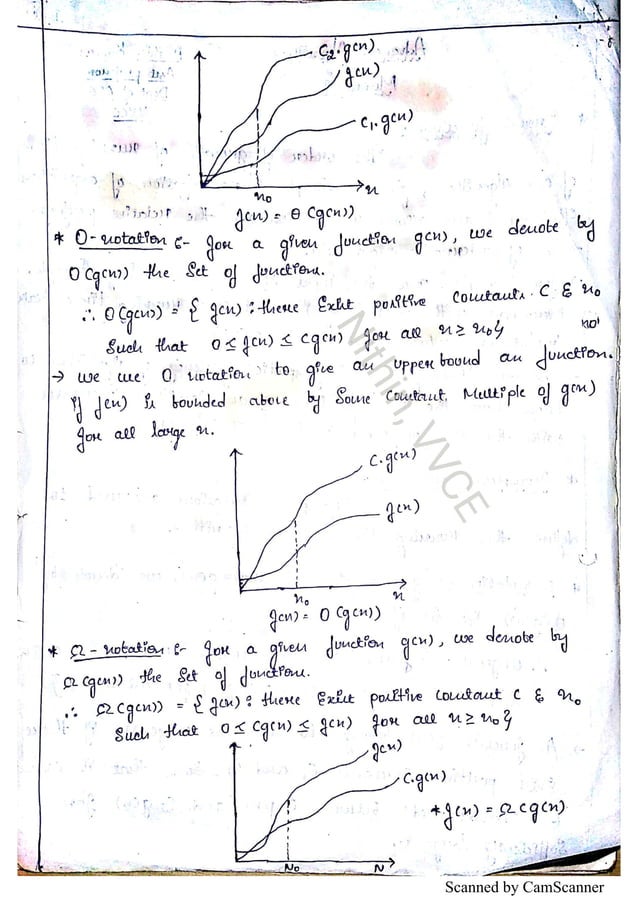 C2.g(n)
f(n)
C1.g(n)
n0
n
f(n) = θ(g(n))
* O-notation :- for a given function g(n), we denote by
O(g(n)) the set of functions.
∴ O(g(n)) = { f(n) : there Exist positive constants C & n0
Such that 0 ≤ f(n) ≤ cg(n) for all n ≥ n0}
→ we use O, notation to give an upper bound an function.
if f(n) is bounded above by Some Constant Multiple of g(n)
for all large n.
C.g(n)
f(n)
n0
n
f(n) = O(g(n))
* Ω-notation :- for a given function g(n), we denote by
Ω(g(n)) the set of function.
∴ Ω(g(n)) = { f(n) : there Exist positive constant C & n0
Such that 0 ≤ Cg(n) ≤ f(n) for all n ≥ n0}
f(n)
C.g(n)
* f(n) = Ω(g(n)
N0
N
Nithin, VVCE
Scanned by CamScanner